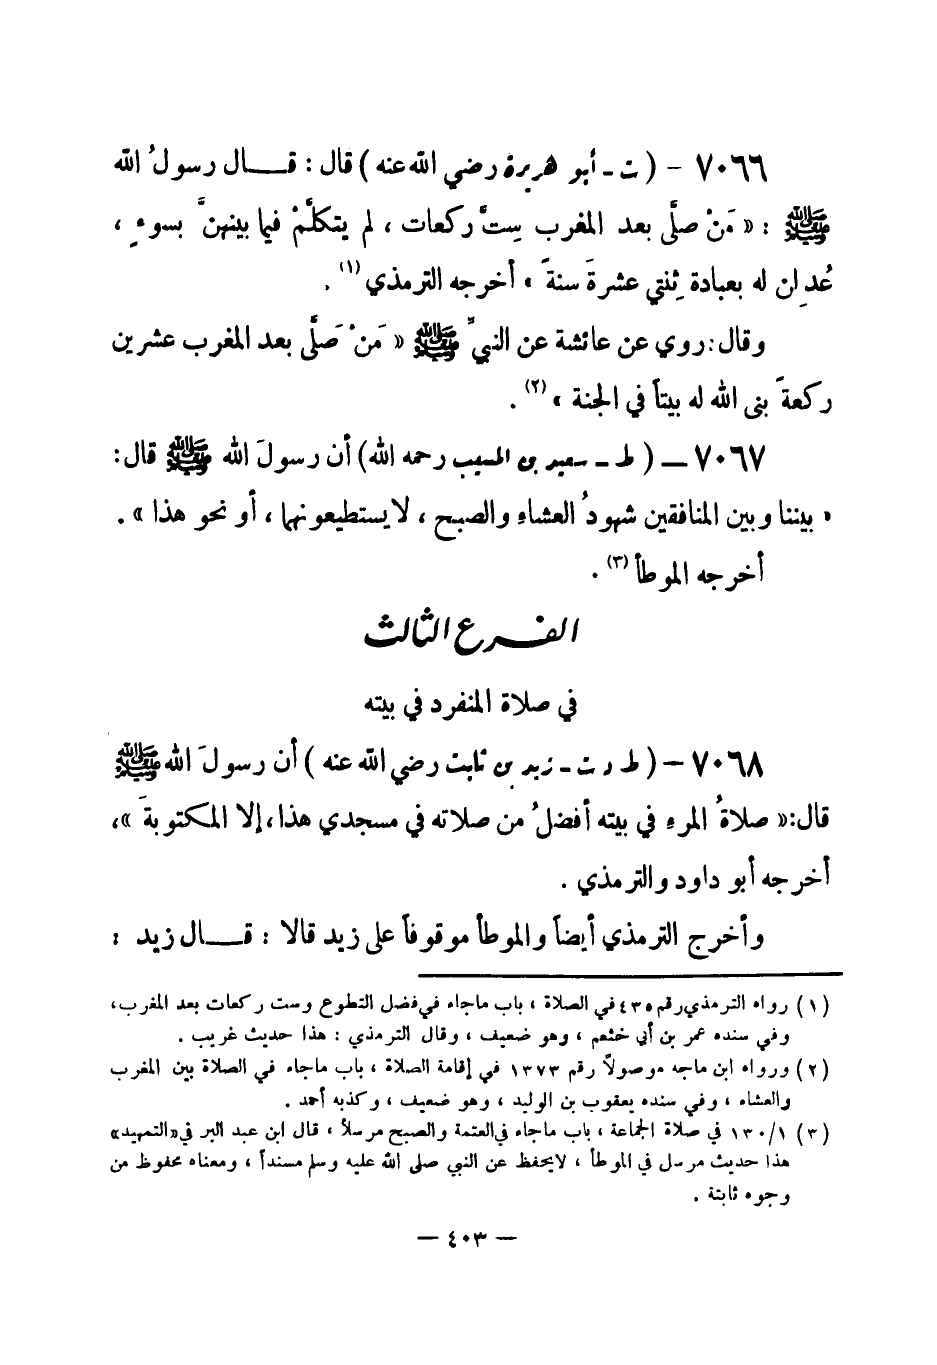 ٧٠٦٦ - ( ت - أبو هريرة رضي الله عنه ) قال : قـــال رسولُ الله
ﷺ : « مَنْ صلَّى بعد المغرب سِتَّ ركعات ، لم يتكلَّمْ فيما بينهنَّ بسوءٍ ،
عُدِلن له بعبادة ثِنتي عشرةَ سنةً » أخرجه الترمذي (١) .
وقال : روي عن عائشة عن النبيِّ ﷺ « مَنْ صَلَّى بعد المغرب عشرين
ركعةً بنى الله له بيتاً في الجنة » (٢) .
٧٠٦٧ – ( ط - سعيد بن المسيب رحمه الله ) أن رسولَ الله ﷺ قال :
« بيننا وبين المنافقين شهودُ العشاءِ والصبح ، لا يستطيعونهما ، أو نحو هذا » .
أخرجه الموطأ (٣) .
الفرع الثالث
في صلاة المنفرد في بيته
٧٠٦٨ – ( ط د ت - زيد بن ثابت رضي الله عنه ) أن رسولَ الله ﷺ
قال : « صلاةُ المرءِ في بيته أفضلُ من صلاته في مسجدي هذا ، إلا المكتوبةَ » ،
أخرجه أبو داود والترمذي .
وأخرج الترمذي أيضاً والموطأ موقوفاً على زيد قالا : قـــال زيد :
(١) رواه الترمذي رقم ٤٣٥ في الصلاة ، باب ماجاء في فضل التطوع وست ركعات بعد المغرب ،
وفي سنده عمر بن أبي خثعم ، وهو ضعيف ، وقال الترمذي : هذا حديث غريب .
(٢) ورواه ابن ماجه موصولاً رقم ١٣٧٣ في إقامة الصلاة ، باب ماجاء في الصلاة بين المغرب
والعشاء ، وفي سنده يعقوب بن الوليد ، وهو ضعيف ، وكذبه أحمد .
(٣) ١٣٠/١ في صلاة الجماعة ، باب ماجاء في العتمة والصبح مرسلاً ، قال ابن عبد البر في «التمهيد»
هذا حديث مرسل في الموطأ ، لايحفظ عن النبي صلى الله عليه وسلم مسنداً ، ومعناه محفوظ من
وجوه ثابتة .
— ٤٠٣ —